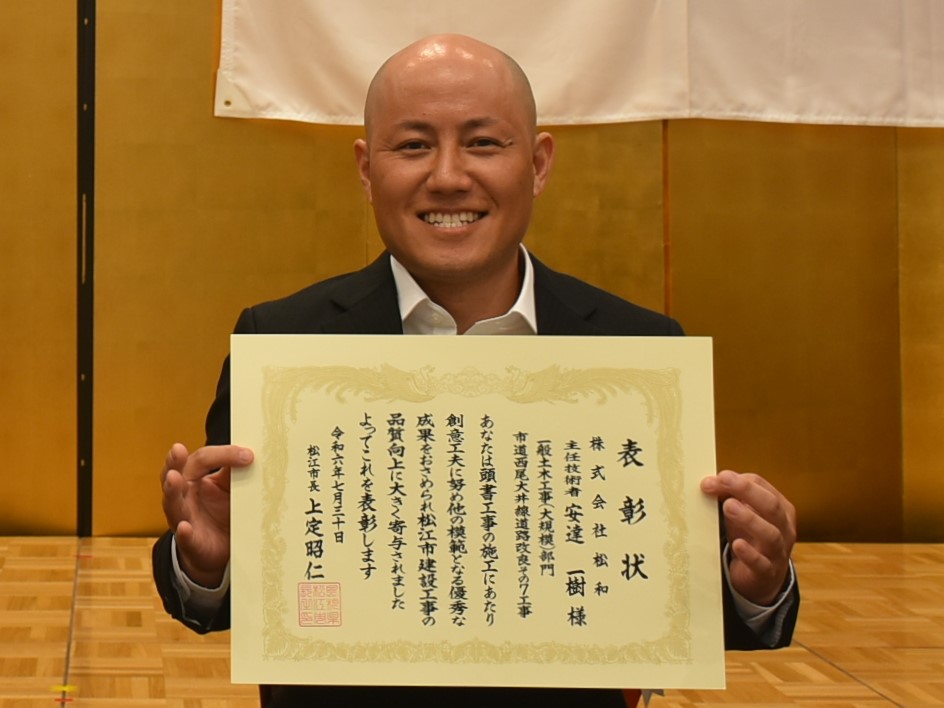 表彰状
株式会社松和
主任技術者 安達 一樹 様
一般土木工事(大規模)部門
市道西尾大井線道路改良その7工事
あなたは頭書工事の施工にあたり
創意工夫に努め他の模範となる優秀な
成果をおさめられ松江市建設工事の
品質向上に大きく寄与されました
よってこれを表彰します
令和六年七月三十日
松江市長 上定昭仁